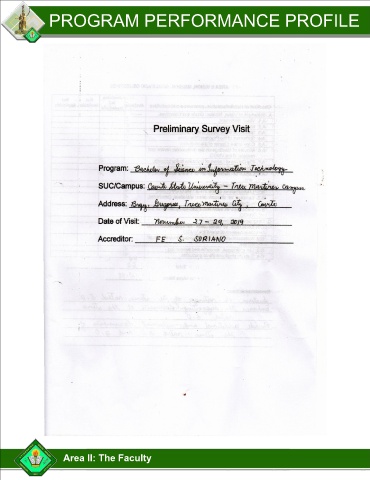 PROGRAM PERFORMANCE PROFILE
Preliminary Survey Visit
Program: Bachelor of Science in Information Technology
SUC/Campus: Cavite State University - Trece Martires Campus
Address: Brgy. Gregorio, Trece Martires City, Cavite
Date of Visit: November 27-29, 2019
Accreditor: FE S. SORIANO
Area II: The Faculty